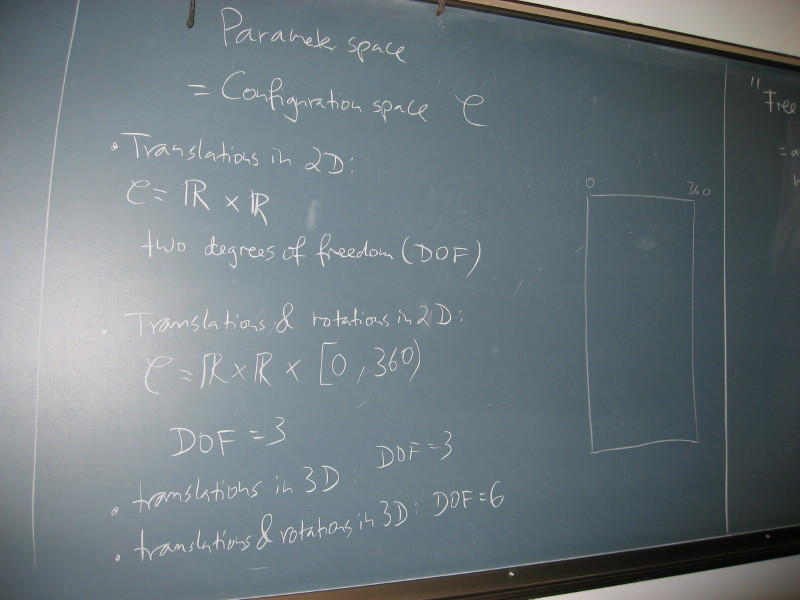 Parameter space
= Configuration space C
• Translations in 2D:
C = ℝ × ℝ
two degrees of freedom (DOF)
• Translations & rotations in 2D:
C = ℝ × ℝ × [0, 360)
DOF = 3
• translations in 3D: DOF = 3
• translations & rotations in 3D: DOF = 6
0 360
"Free
=